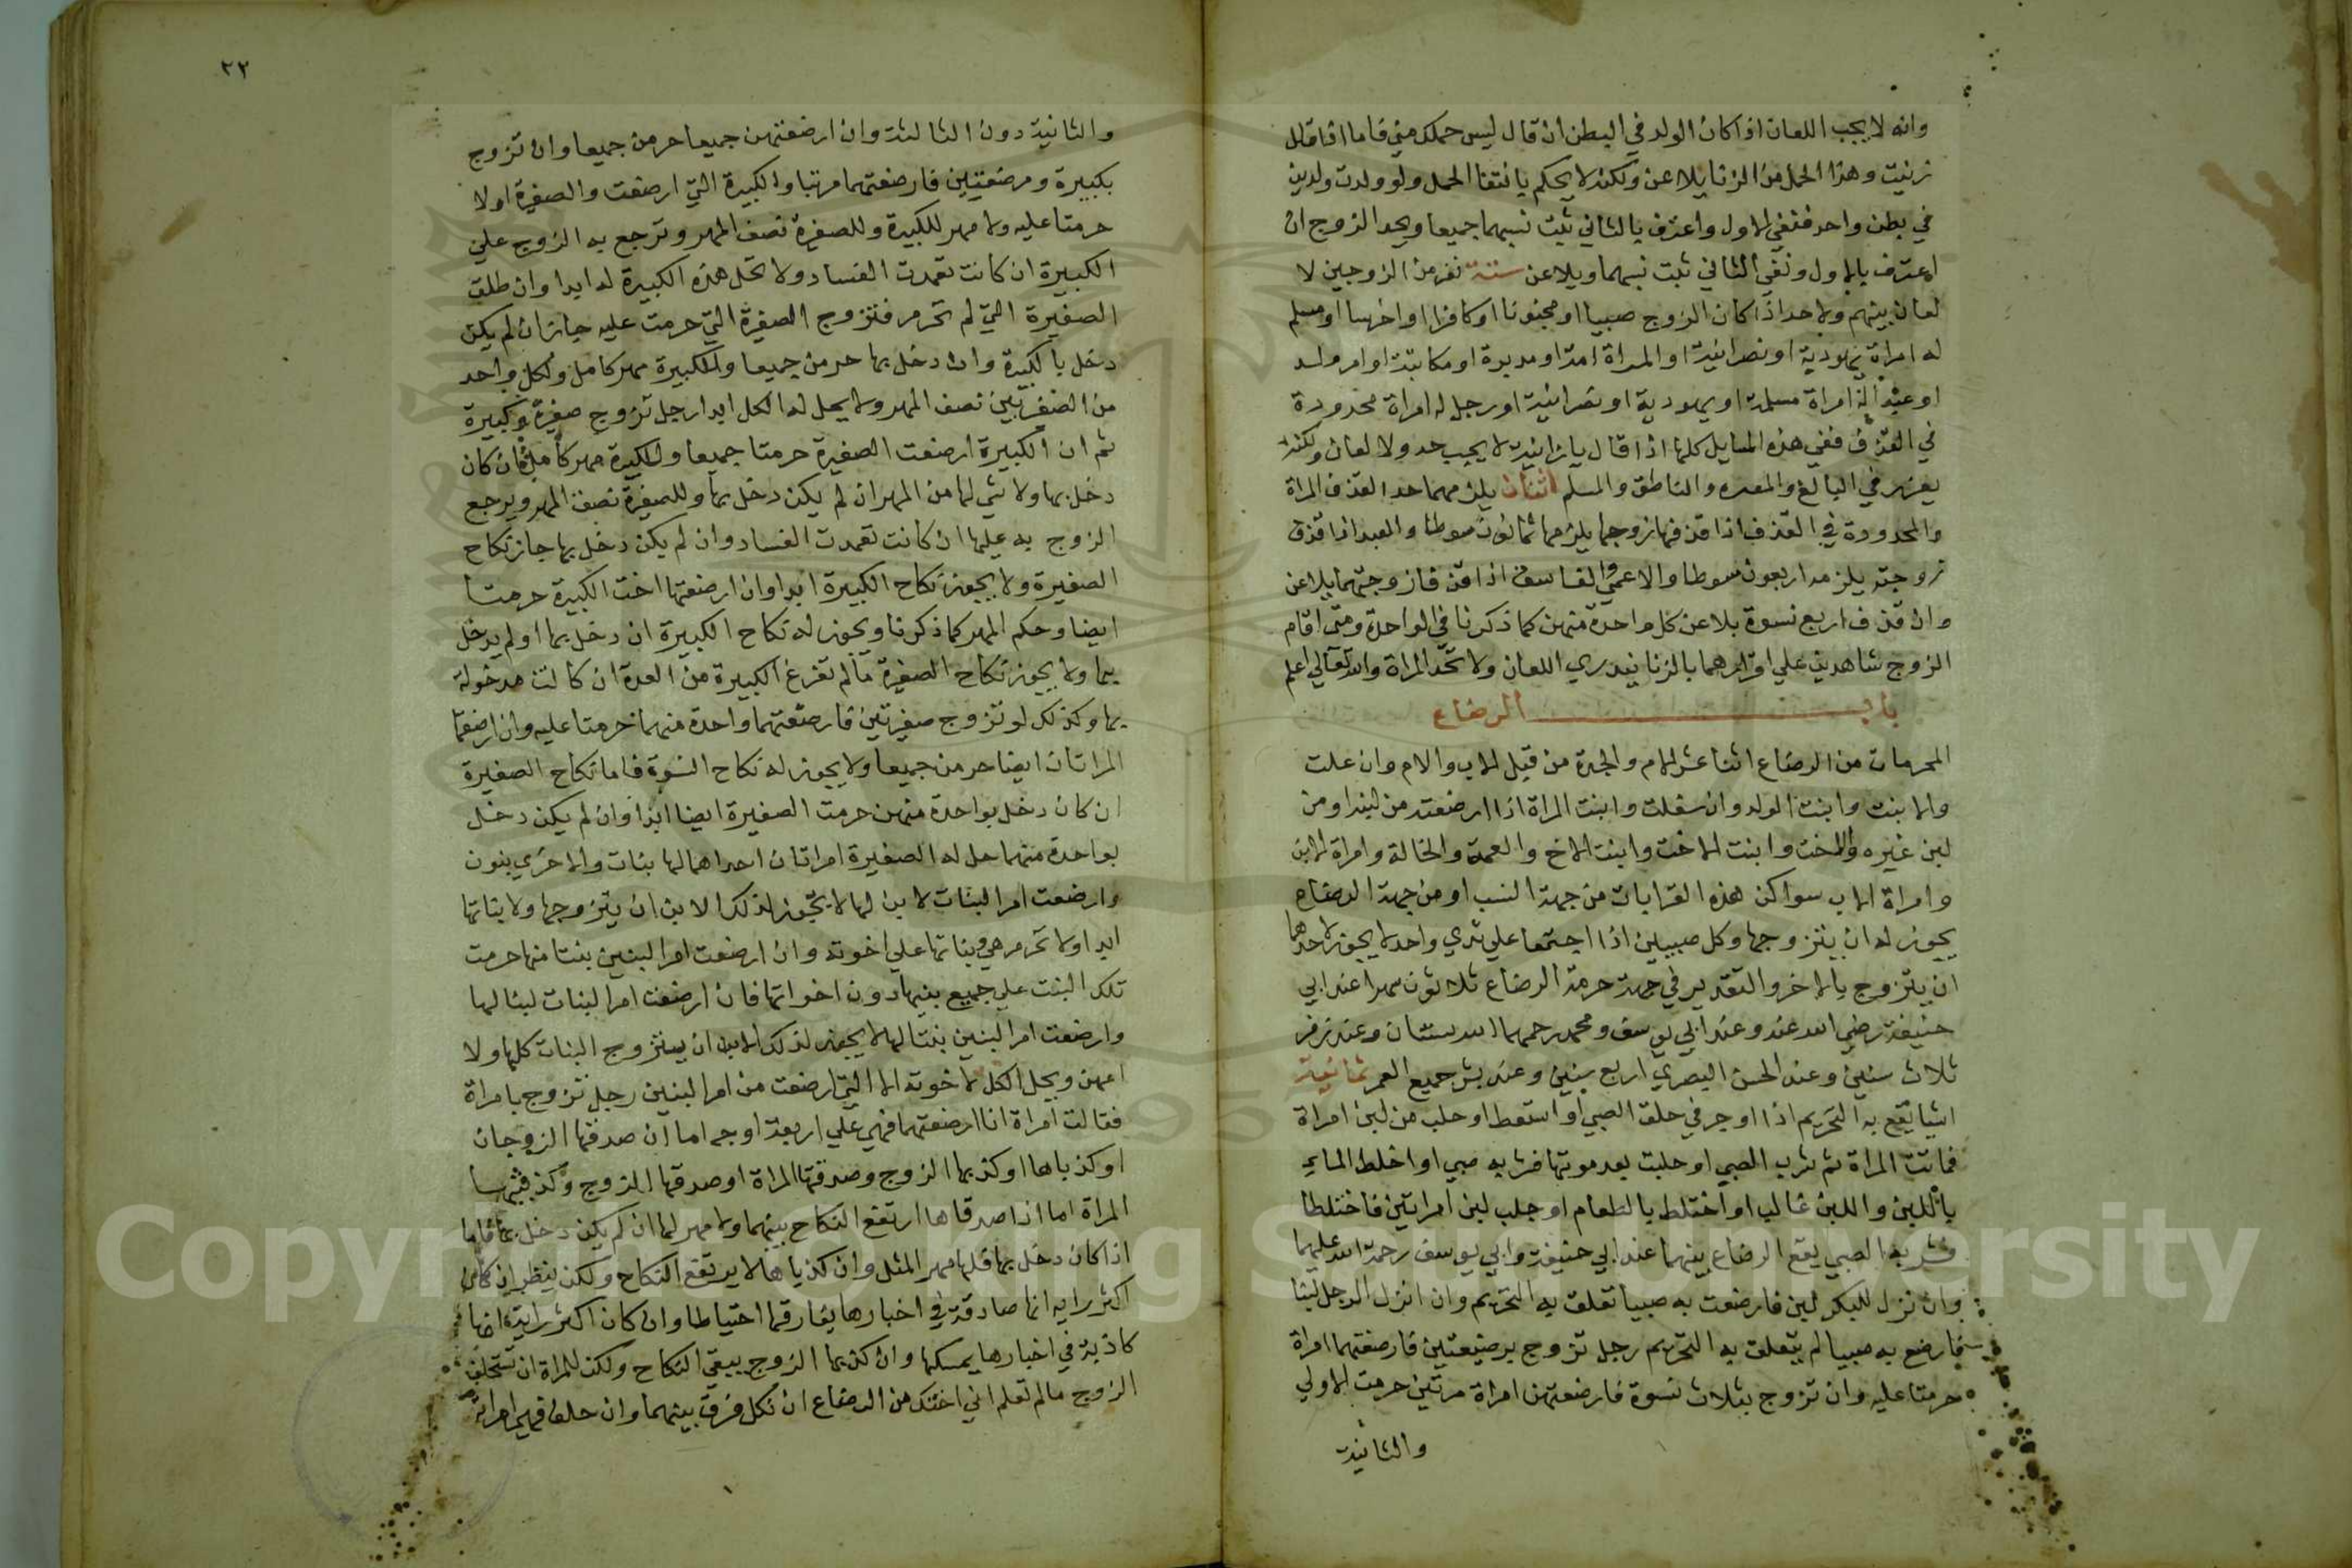 وانه لا يجب اللعان اذا كان الولد في البطن ان قال ليس حملك مني فاما اذا قال
زنيت وهذا الحمل من الزنا يلاعن ولكنه لا يحكم بانتفا الحمل ولو ولدت ولدين
في بطن واحد فنفي الاول واعترف بالثاني ثبت نسبهما جميعا ويحد الزوج ان
اعترف بالاول ونفي الثاني ثبت نسبهما ويلاعن ستة نفر من الزوجين لا
لعان بينهم ولا حد اذا كان الزوج صبيا او مجنونا او كافرا او اخرسا او مسلم
له امراة يهودية او نصرانية او المراة امة او مدبرة او مكاتبة او ام ولد
او عبد له امراة مسلمة او يهودية او نصرانية او رجل له امراة محدودة
في القذف ففي هذه المسايل كلها اذا قال يا زانية لا يجب حد ولا لعان ولكنه
يعزر في البالغ والمعتوه والناطق والمسلم اثنان يلزمهما حد القذف المراة
والمحدودة في القذف اذا قذفها زوجها يلزمها ثمانون سوطا والعبد اذا قذف
زوجته يلزمه اربعون سوطا والاعمي والفاسق اذا قذفا زوجتهما يلاعن
وان قذف اربع نسوة يلاعن كل واحدة منهن كما ذكرنا في الواحدة ومتى اقام
الزوج شاهدين علي اقرارهما بالزنا يندري اللعان ولا تحد المراة والله تعالي اعلم
باب الرضاع
المحرمات من الرضاع اثنا عشر الام والجدة من قبل الاب والام وان علت
والابنت وابنت الولد وان سفلت وابنت المراة اذا ارضعته من لبنه او من
لبن غيره والاخت وابنت الاخت وابنت الاخ والعمة والخالة وامراة الابن
وامراة الاب سوا كن هذه القرابات من جهة النسب او من جهة الرضاع
يجوز له ان يتزوجها وكل صبيين اذا اجتمعا علي ثدي واحد لا يجوز لاحدهما
ان يتزوج بالاخر والتقدير في جهة حرمة الرضاع ثلاثون شهرا عند ابي
حنيفة رضي الله عنه وعند ابي يوسف ومحمد رحمهما الله سنتان وعند زفر
ثلاث سنين وعند الحسن البصري اربع سنين وعند بشر جميع العمر ثمانية
اشيا يقع به التحريم اذا اوجر في حلق الصبي او استعط او حلب من لبن امراة
فماتت المراة ثم شرب الصبي او حلبت بعد موتها فشربه صبي او اختلط الماء
باللبن واللبن غالب او اختلط بالطعام او حلب لبن امراتين فاختلطا
فشربه الصبي يقع الرضاع بينهما عند ابي حنيفة وابي يوسف رحمة الله عليهما
وان نزل للبكر لبن فارضعت به صبيا تعلق به التحريم وان انزل الرجل لبنا
فارضع به صبيا لم يتعلق به التحريم رجل تزوج برضيعتين فارضعتهما امراة
حرمتا عليه وان تزوج بثلاث نسوة فارضعتهن امراة مرتين حرمت الاولي
والثانية
٢٢
والثانية دون الثالثة وان ارضعتهن جميعا حرمن جميعا وان تزوج
بكبيرة ومرضعتين فارضعتهما مرتبا والكبيرة التي ارضعت والصغيرة اولا
حرمتا عليه ولا مهر للكبيرة وللصغيرة نصف المهر وترجع به الزوج علي
الكبيرة ان كانت تعمدت الفساد ولا تحل هذه الكبيرة له ابدا وان طلق
الصغيرة التي لم تحرم فتزوج الصغيرة التي حرمت عليه جاز ان لم يكن
دخل بالكبيرة وان دخل بها حرمن جميعا وللكبيرة مهر كامل ولكل واحد
من الصغيرتين نصف المهر ولا يحل له الكل ابدا رجل تزوج صغيرة وكبيرة
ثم ان الكبيرة ارضعت الصغيرة حرمتا جميعا وللكبيرة مهر كامل فان كان
دخل بها ولا شي لها من المهر ان لم يكن دخل بها وللصغيرة نصف المهر ويرجع
الزوج به عليها ان كانت تعمدت الفساد وان لم يكن دخل بها جاز نكاح
الصغيرة ولا يجوز نكاح الكبيرة ابدا وان ارضعتها اخت الكبيرة حرمتا
ايضا وحكم المهر كما ذكرنا ويجوز له نكاح الكبيرة ان دخل بها او لم يدخل
بها ولا يجوز نكاح الصغيرة ما لم تفرغ الكبيرة من العدة ان كانت مدخولة
بها وكذلك لو تزوج صغيرتين فارضعتهما واحدة منهما حرمتا عليه وان ارضعتا
المراتان ايضا حرمن جميعا ولا يجوز له نكاح النسوة فاما نكاح الصغيرة
ان كان دخل بواحدة منهن حرمت الصغيرة ايضا ابدا وان لم يكن دخل
بواحدة منهما حل له الصغيرة امراتان احداهما لها بنات والاخري بنون
وارضعت ام البنات لابن لها لا يجوز لذلك الابن ان يتزوجها ولا بناتها
ابدا ولا تحرم هي وبناتها علي اخوته وان ارضعت ام البنين بنتا منها حرمت
تلك البنت علي جميع بنيها دون اخواتها فان ارضعت ام البنات لبنا لها
وارضعت ام البنين بنتا لها لا يجوز لذلك الابن ان يتزوج البنات كلها ولا
امهن ويحل الكل لاخوته الا التي ارضعت من ام البنين رجل تزوج بامراة
فقالت امراة انا ارضعتهما فهي علي اربعة اوجه اما ان صدقها الزوجان
او كذباها او كذبها الزوج وصدقتها المراة او صدقها الزوج وكذبتها
المراة اما اذا صدقاها ارتفع النكاح بينهما ولا مهر لها ان لم يكن دخل بها فاما
اذا كان دخل بها فلها مهر المثل وان كذباها لا يرتفع النكاح ولكن ينظر ان كان
اكثر رايه انها صادقة في اخبارها يفارقها احتياطا وان كان اكثر رايه انها
كاذبة في اخبارها يمسكها وان كذبها الزوج يبقي النكاح ولكن للمراة ان تستحلف
الزوج مالم تعلم اني اختك من الرضاع ان نكل فرق بينهما وان حلف فهي امراته
Copyright © King Saud University